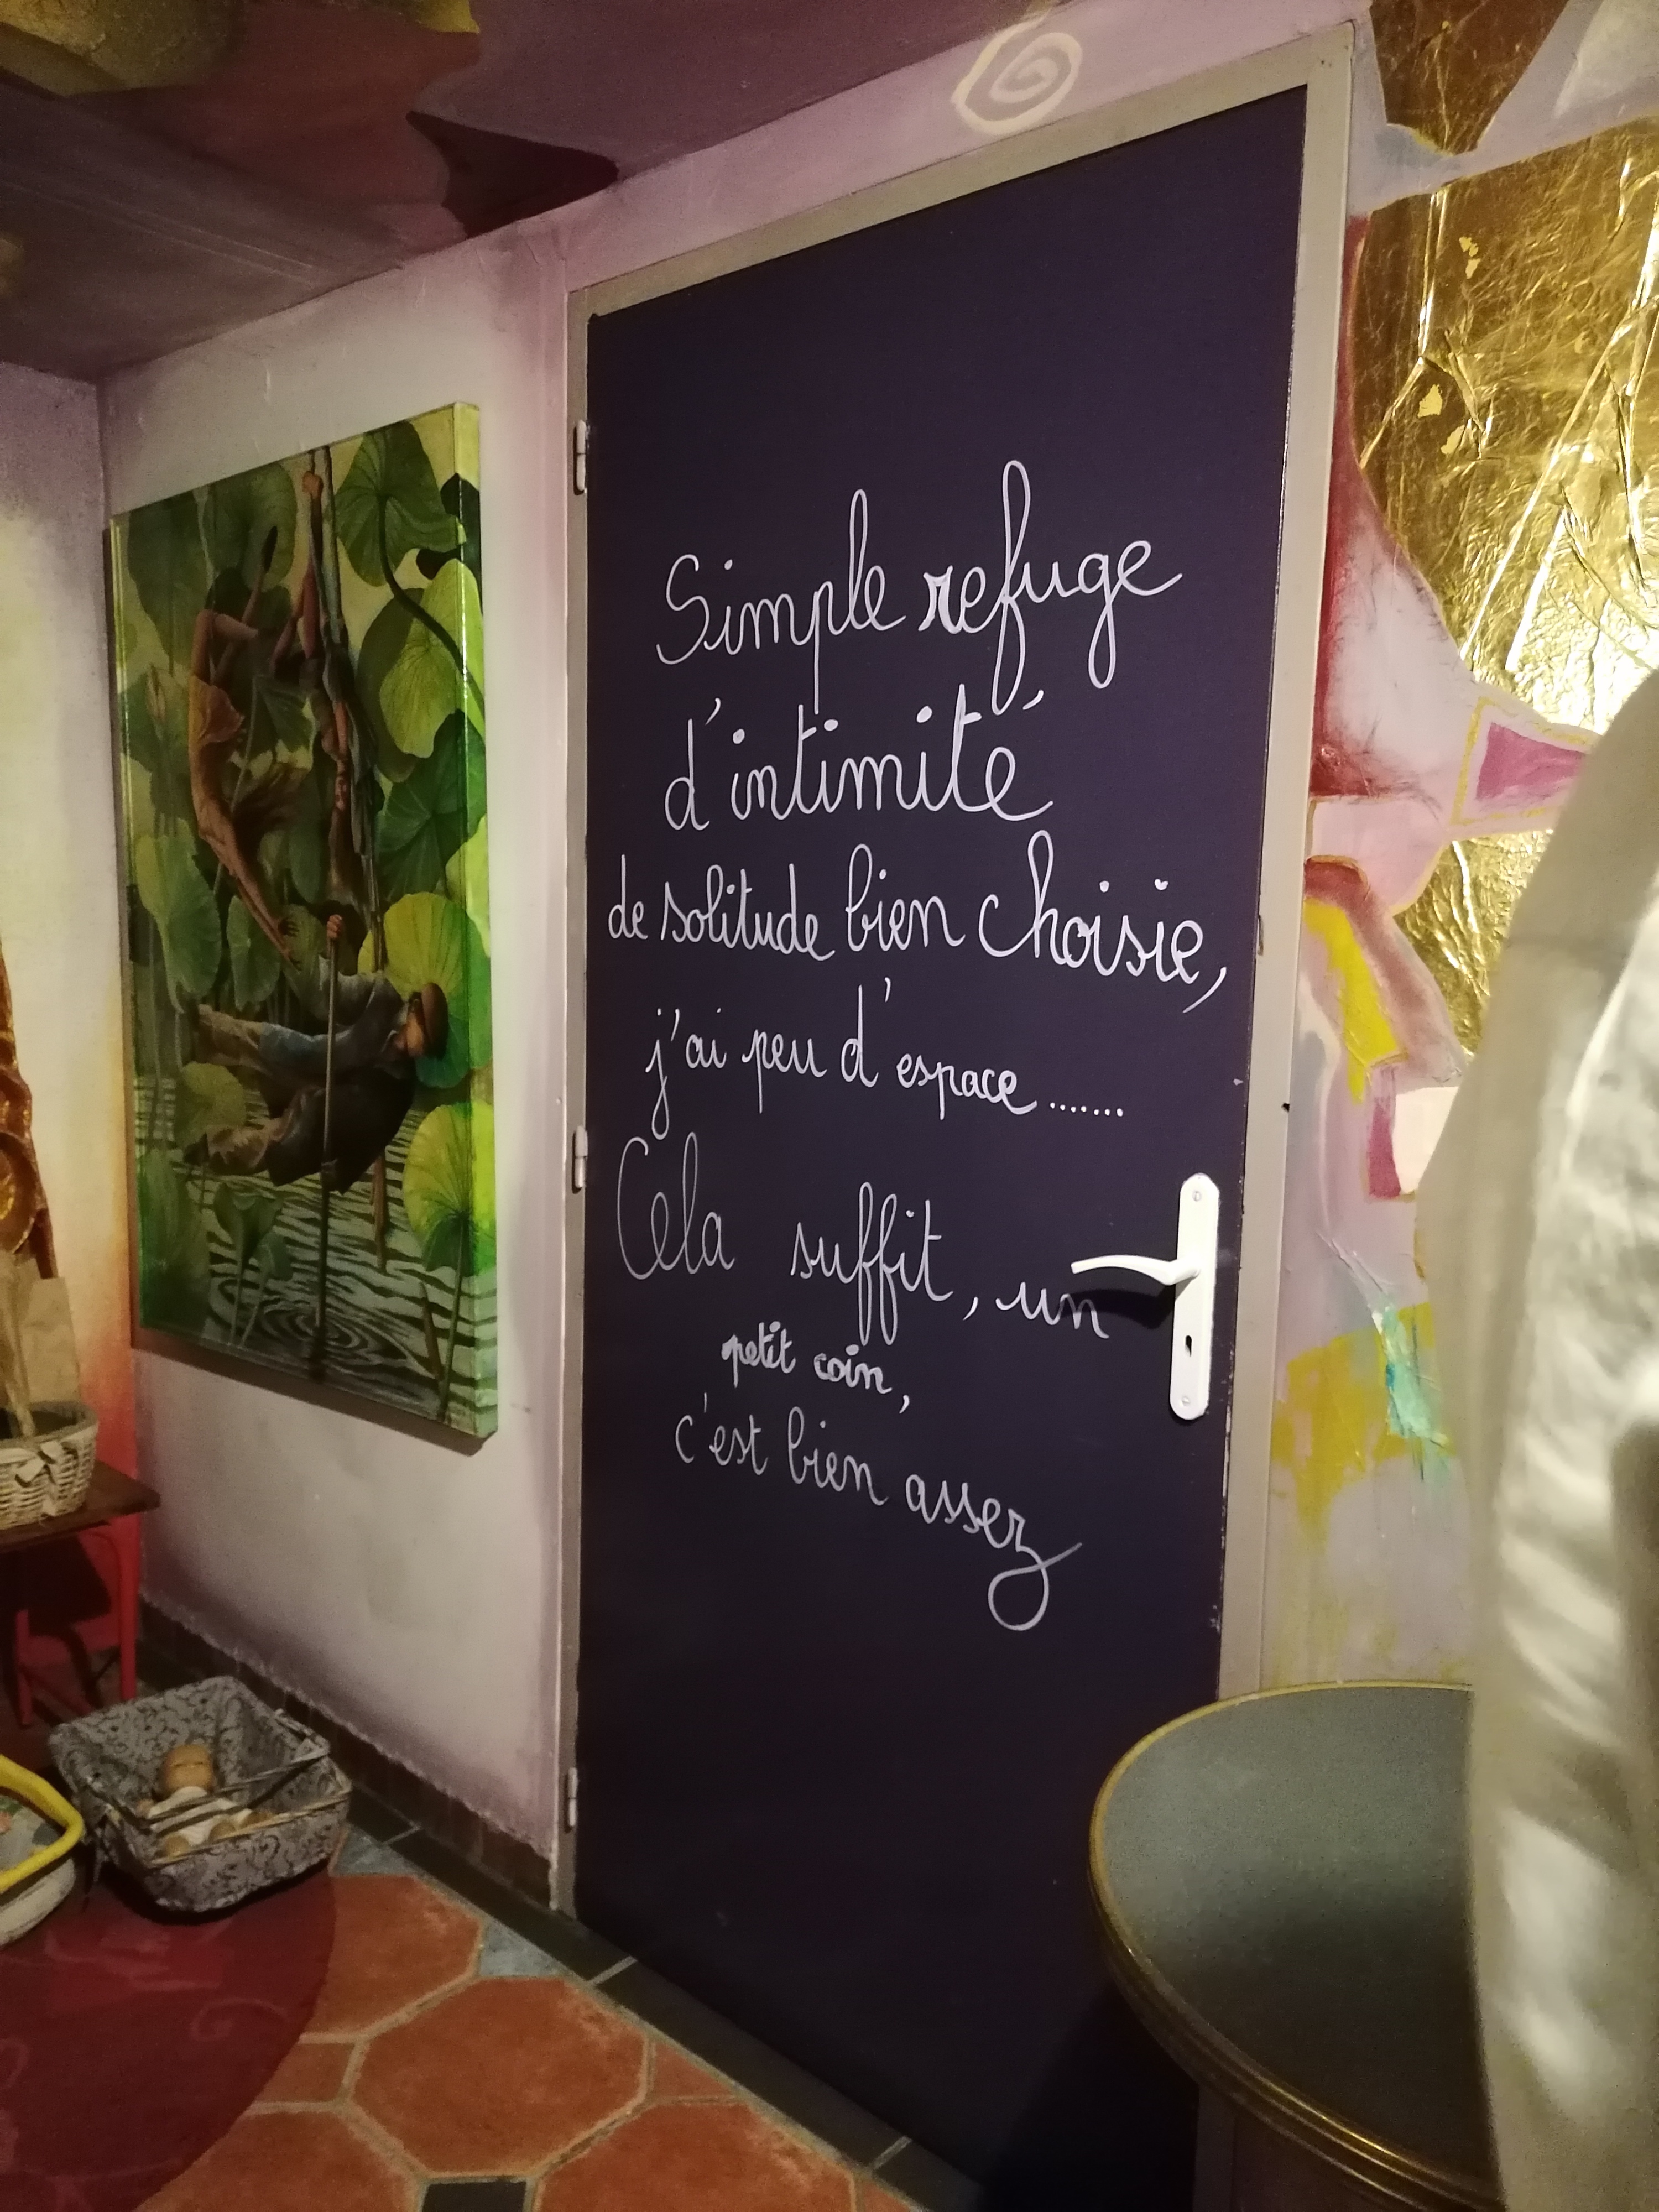 Simple refuge
d'intimité
de solitude bien choisie,
j'ai peu d'espace.......
Cela suffit, un
petit coin,
c'est bien assez